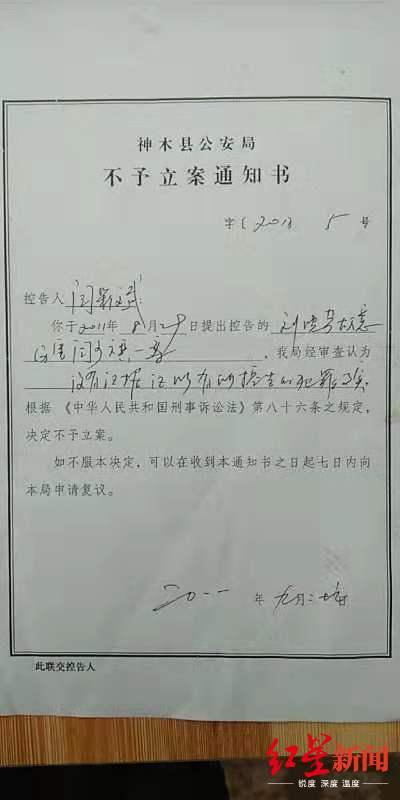 神木县公安局
不予立案通知书
字〔2011 5 号
控告人闫
你于2011年8月29日提出控告的 故意
伤害 一案,我局经审查认为
没有证据证 有 控告的犯罪事实
根据《中华人民共和国刑事诉讼法》第八十六条之规定,
决定不予立案。
如不服本决定,可以在收到本通知书之日起七日内向
本局申请复议。
二0一一年九月二 日
此联交控告人
红星新闻
锐度 深度 温度